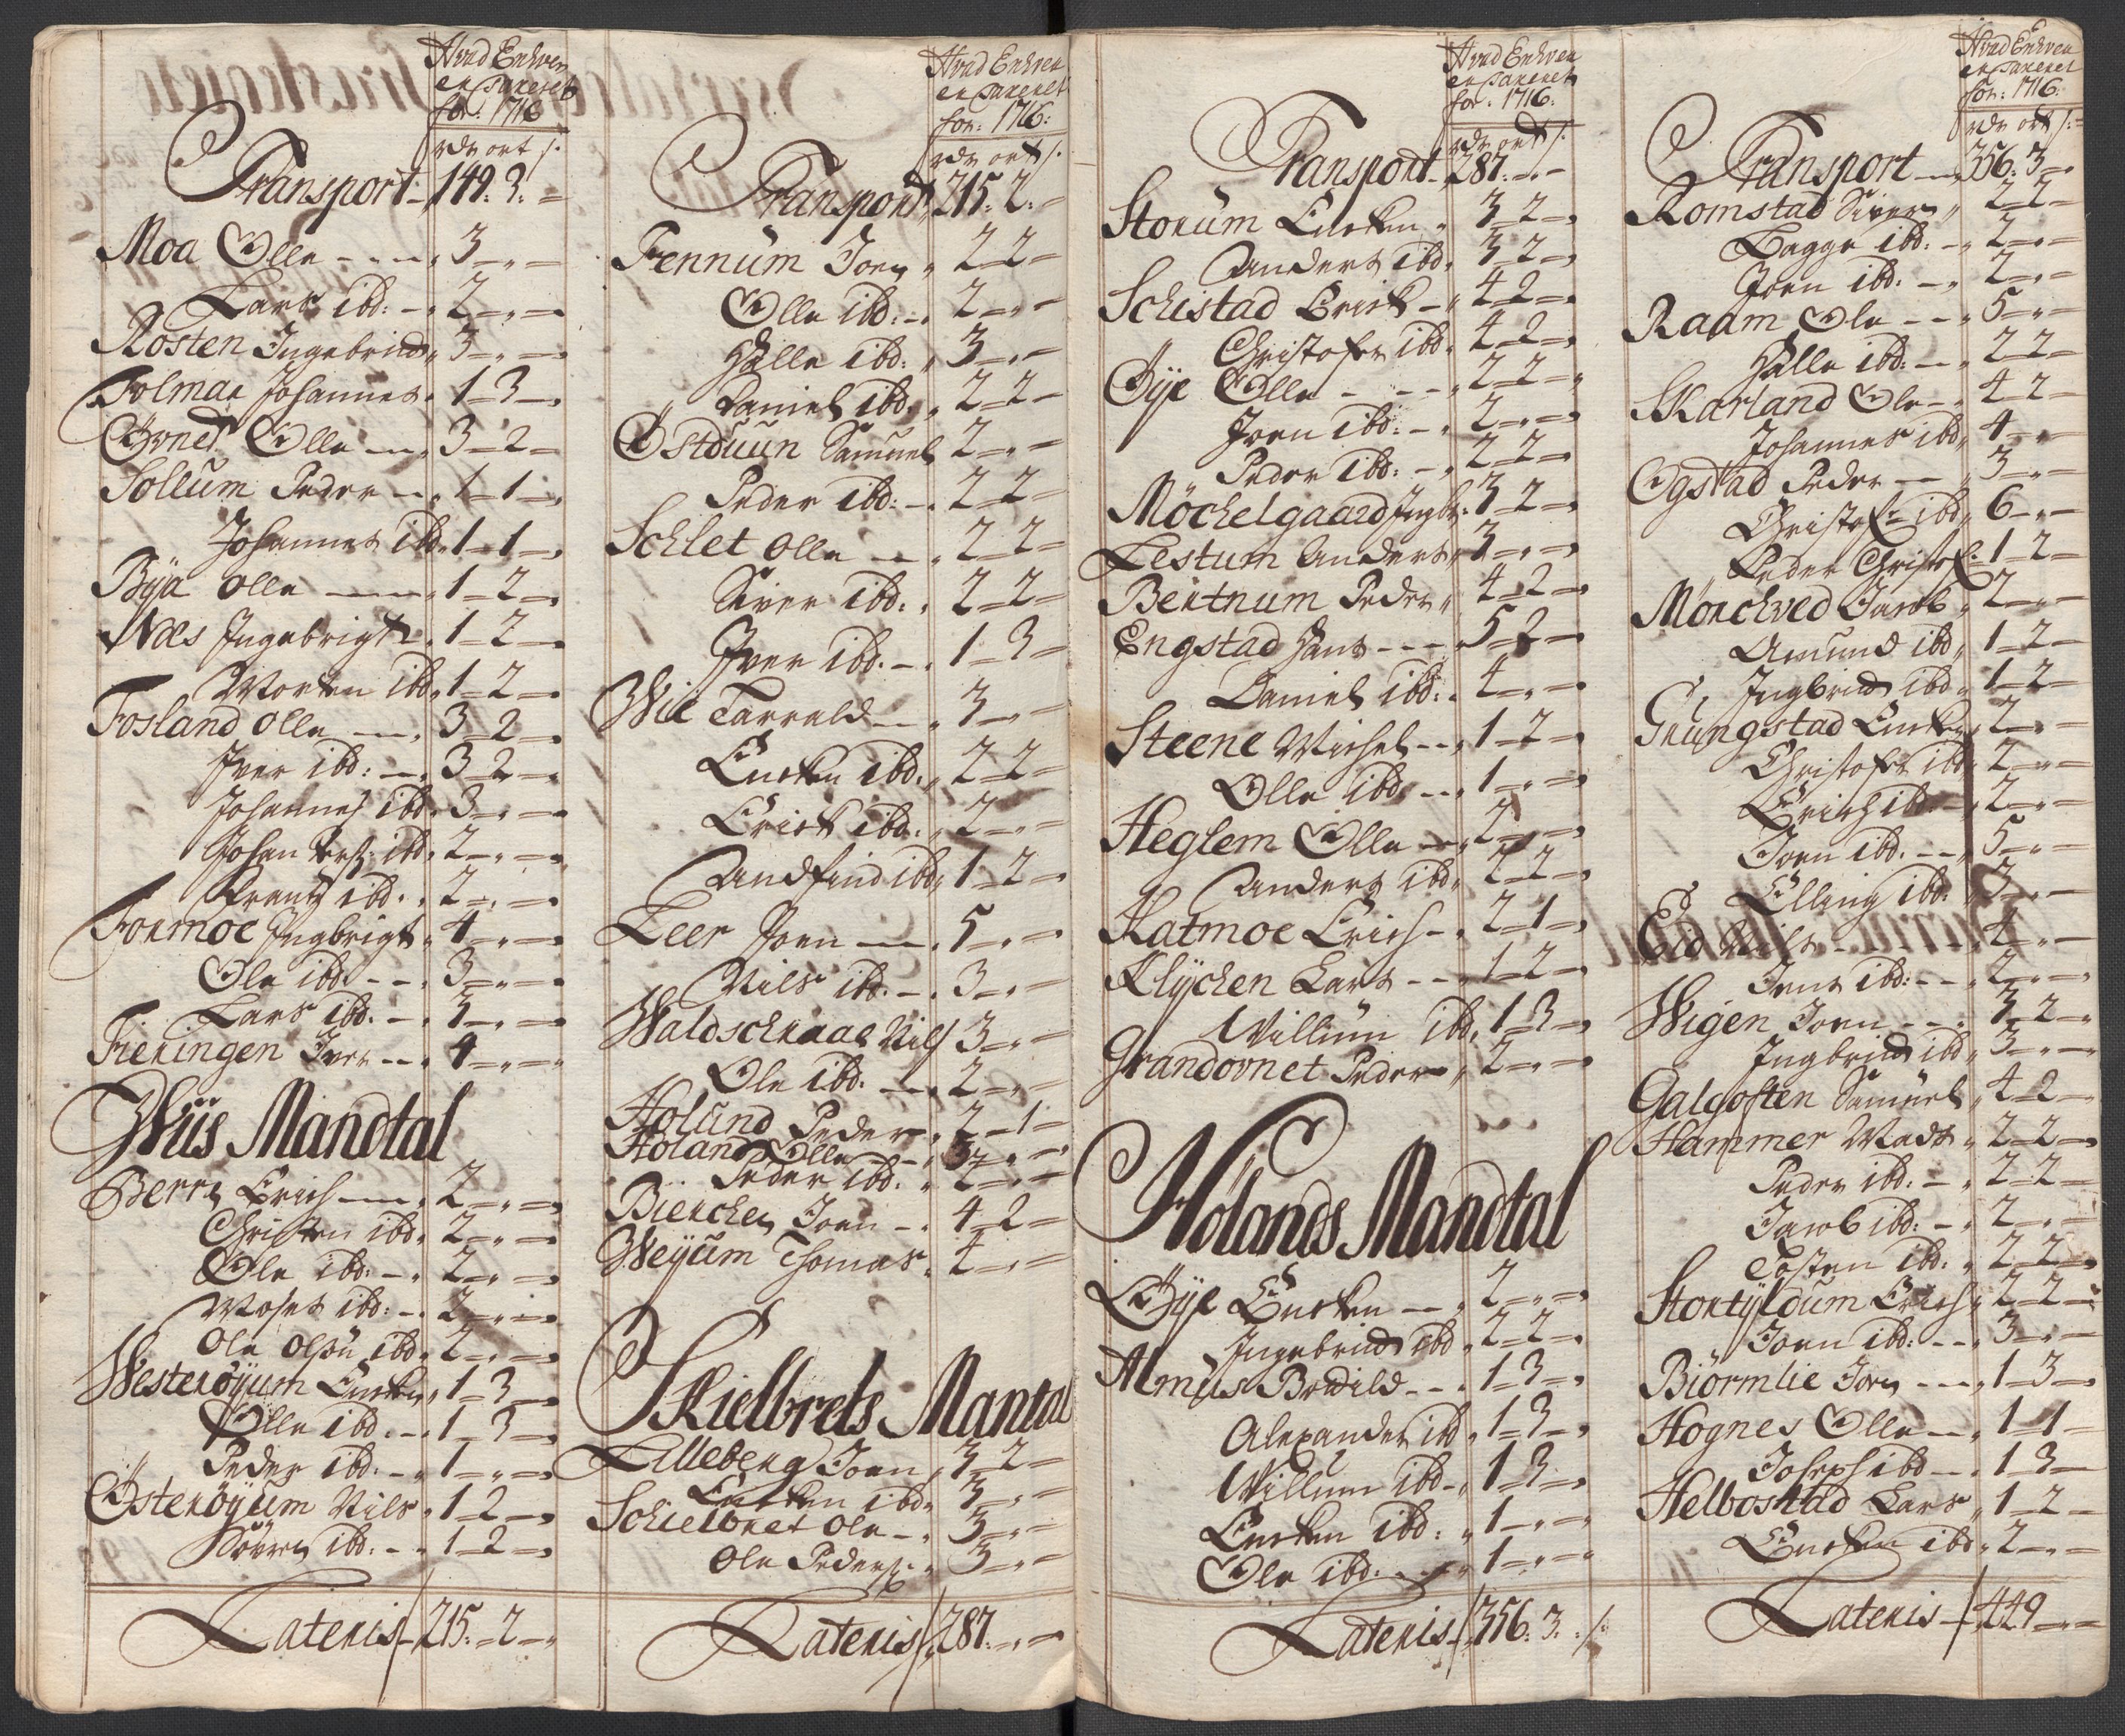 Hvad Enhver
er Taxeret
for: 1716
rdr ort ſ:
Transport 149. 3. –
Moa Olle – – – 3 – „ –
Lars ibd: – 2 – „ –
Rosten Ingebricht 3 – „ –
Folmar Johannes 1 – 3 –
Ørnes Olle – 3 – 2 –
Sollum Peder – 1 – 1 –
Johannes ibd 1 – 1 –
Bÿa Olle – 1 – 2 –
Næs Ingebrigt 1 – 2 –
Morten ibd 1 – 2 –
Fosland Olle – 3 – 2 –
Iver ibd: – 3 – 2 –
Johannes ibd 3 – „ –
Johan ibd 2 – „ –
Frantz ibd. 2 – „ –
Formoe Ingbrigt 4 – „ –
Ole ibd – – 3 – „ –
Lars ibd. – 3 – „ –
Fieringen Iver – 4 – „ –
Wiis Mandtal
Berrg Erich – 2 – „ –
Christen ibd 2 – „ –
Ole ibd: – 2 – „ –
Moses ibd: – 2 – „ –
Ole Olsøn ibd 2 – „ –
Westerøÿum Encken 1 – 3 –
Olle ibd. – 1 – 3 –
Peder ibd. – 1 – „ –
Østerøÿum Nils 1 – 2 –
ibd. – 1 – 2 –
Lateris 215. – 2 –
Hvad Enhver
er Taxeret
for: 1716:
rdr ort ſ:
Transport 215. 2. –
Fennum Joen 2 – 2 –
Olle ibd: – 2 – „ –
Halle ibd: 3 – „ –
Daniel ibd. 2 – 2 –
Østduun Samuel 2 – „ –
Peder ibd: – 2 – 2 –
Schlet Olle – 2 – 2 –
Siver ibd: 2 – 2 –
Iver ibd. – 1 – 3 –
Wie Tarrald – 3 – „ –
Encken ibd. 2 – 2 –
Erick ibd. 2 – „ –
Andfind ibd 1 – 2 –
Leer Joen – 5 – „ –
Nils ibd. – 3 – „ –
Waldschraae Nils 3 – „ –
Ole ibd. – 2 – „ –
Holand Peder 2 – 1 –
Holand Olle – 3 – „ –
Peder ibd. 2 – „ –
Biercken Joen – 4 – 2 –
Weÿum Thomas 4 – „ –
Skielbreds Mantal
Lilleberg Joen 3 – 2 –
Encken ibd 3 – „ –
Schielbret Ole – 3 – „ –
Ole Peders: 3 – „ –
Lateris 287. – „ –
Hvad Enhver
er Taxeret
for: 1716:
rdr ort ſ:
Transport 287. – „ –
Storum Encken 3 – 2 –
Anders ibd 3 – 2 –
Schistad Erick – 4 – 2 –
Christofer ibd. 4 – 2 –
Øÿe Olle – – – 2 – 2 –
Joen ibd: – 2 – „ –
Peder ibd: – 2 – 2 –
Möchelgaard Ingbr: 3 – 2 –
Lestum Anders 3 – „ –
Bertnum Peder 4 – 2 –
Engstad Hans – – – 5 – 2 –
Daniel ibd: 4 – „ –
Steene Michel – – 1 – 2 –
Olle ibd – 1 – „ –
Heglem Olle – 2 – „ –
Anders ibd 2 – 2 –
Hatmoe Erich – 2 – 1 –
Klÿcken Lars – – 1 – 2 –
Villum ibd. 1 – 3 –
Grandovnet Peder 2 – „ –
Hölands Mandtal
Øÿe Encken – 2 – „ –
Ingebricht ibd 2 – 2 –
Almaas Bodild – – 1 – 3 –
Alexander ibd 1 – 3 –
Villum ibd – 1 – 3 –
Encken ibd: 1 – „ –
Ole ibd. – 1 – „ –
Lateris 356. 3. ſ.
Hvad Enhver
er Taxeret
for: 1716:
rdr ort ſ:
Transport – 356. 3 –
Romstad Siver 2 – 2 –
Bagge ibd: – 2 – „ –
Joen ibd: – 2 – „ –
Raam Ole – – 5 – „ –
Halle ibd: – 2 – 2 –
Skarland Ole – 4 – 2 –
Johannes ibd 4 – „ –
Ogstad Peder – 3 – „ –
Christof: ibd 6 – „ –
Peder Christof: 1 – 2 –
Mörckved Jacob 2 – „ –
Amund ibd 1 – 2 –
Ingbricht ibd 1 – 2 –
Grungstad Encken 2 – „ –
Christofer ibd 2 – „ –
Erich ibd 2 – „ –
Joen ibd. – – 5 – „ –
Elling ibd: 3 – „ –
Eid Nils – – – 4 – „ –
Jens ibd: – – 2 – „ –
Wigen Joen – – – 3 – 2 –
Ingbricht ibd 3 – „ –
Galgoften Samuel 4 – 2 –
Hammer Mads 2 – 2 –
Peder ibd: – 2 – 2 –
Jacob ibd: – 2 – „ –
Tosten ibd: 2 – 2 –
Stortÿldum Erich 2 – 2 –
Joen ibd: – – 3 – „ –
Biörmlie Joen – – – 1 – 3 –
Hognes Olle – 1 – 1 –
Joseph ibd – 1 – 3 –
Helbostad Lars 1 – 2 –
Encken ibd 2 – „ –
Lateris – 449 – „ –